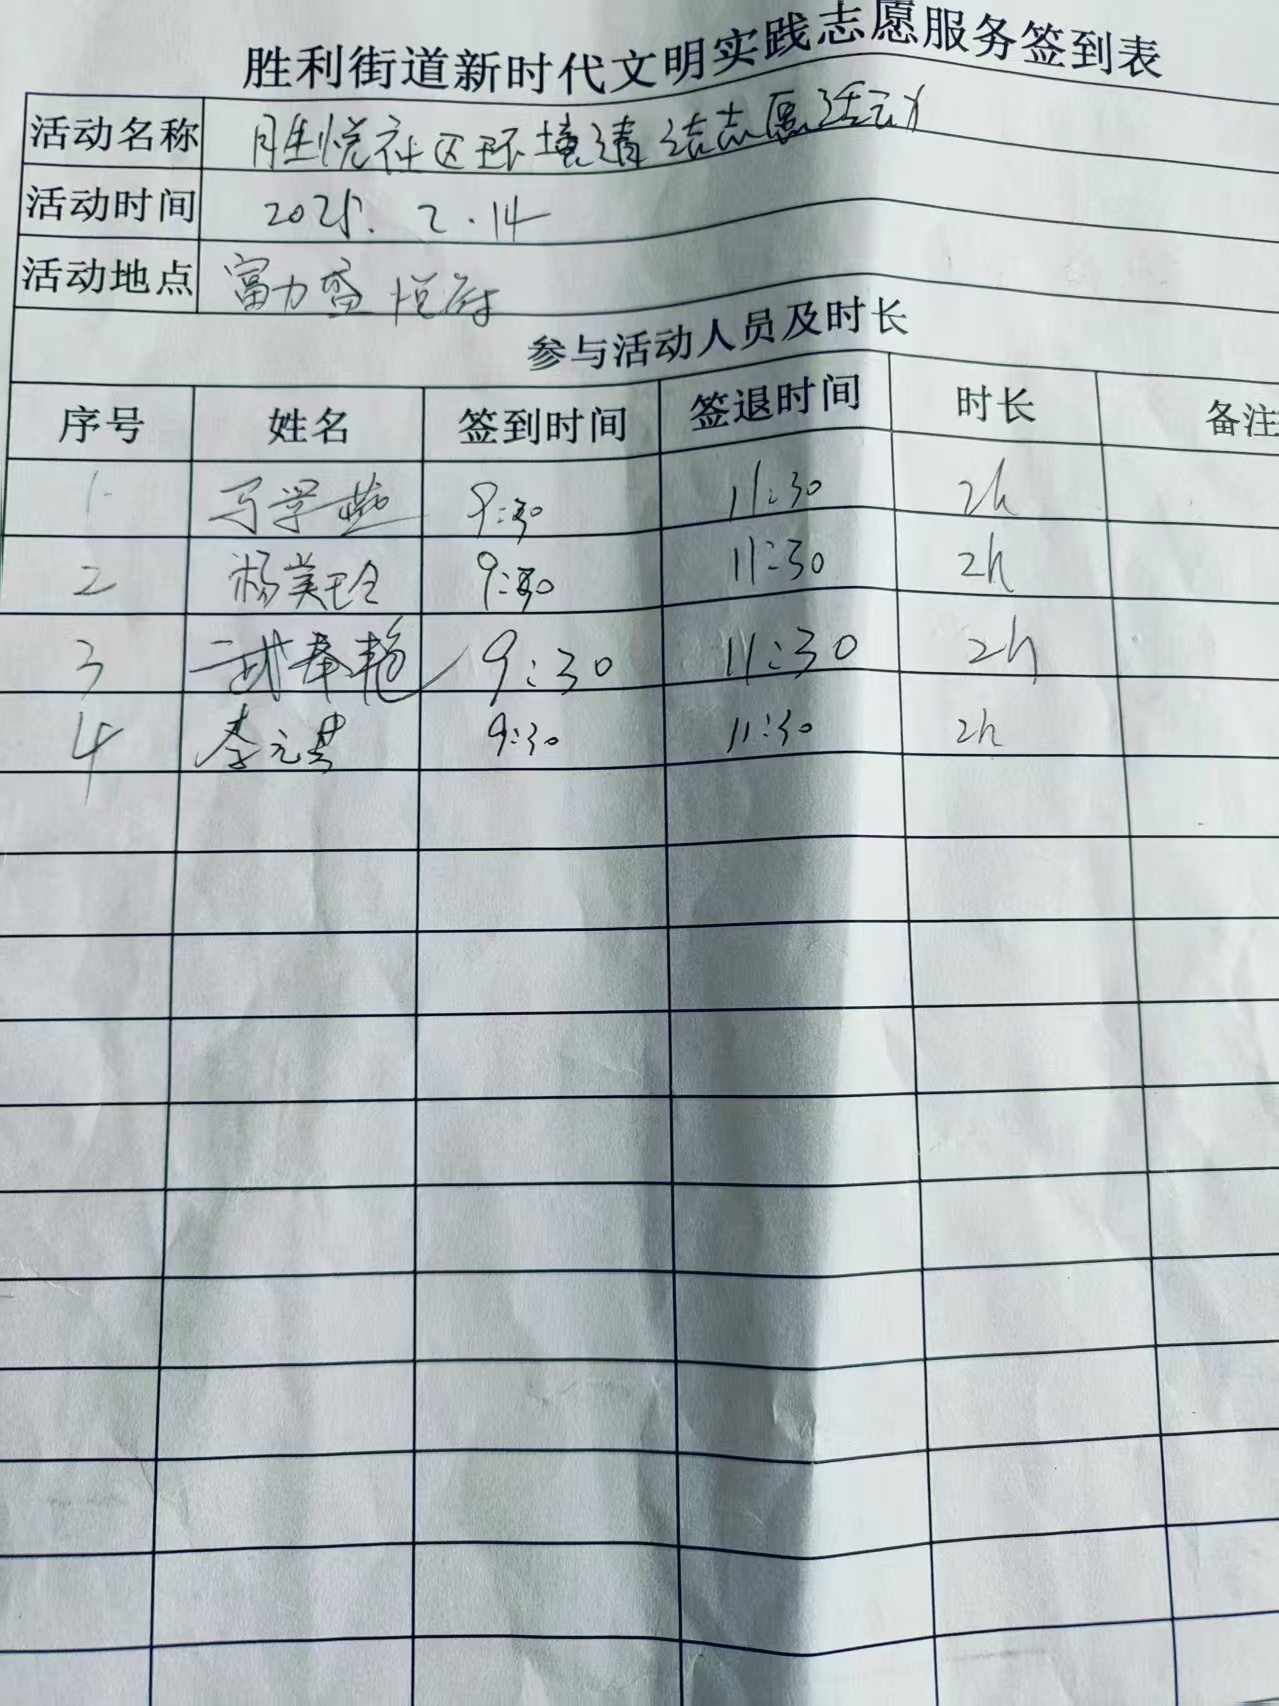 胜利街道新时代文明实践志愿服务签到表
活动名称 胜悦社区环境清洁志愿活动
活动时间 2025.2.14
活动地点 富力盛悦府
参与活动人员及时长
序号 姓名 签到时间 签退时间 时长 备注
1 马学燕 9:30 11:30 2h
2 杨美玲 9:30 11:30 2h
3 武春艳 9:30 11:30 2h
4 李元英 9:30 11:30 2h